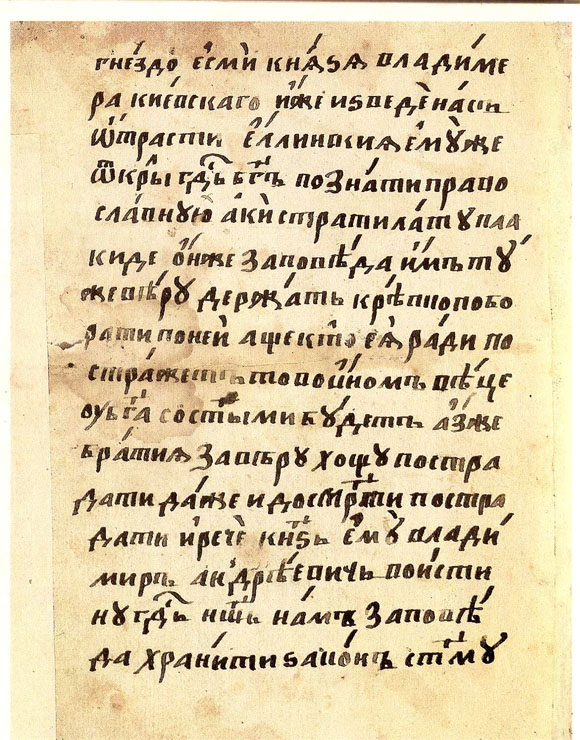 гнѣздо есми кнѧѕѧ владиме
ра киевскаго иже иѕведе наси
ѿ трасти еллинскиѧ ємꙋже
ѿкры гдⷭ҇ь бг҃ъ познати право
славную аки стратилатꙋ пла
киде онже заповѣда имъ тꙋ
же вѣрꙋ держать крѣпно побо
рати по ней аще кто еѧ ради по
стражетъ то во иномъ вѣце
оу бг҃а со ст҃ыми бꙋдетъ азже
братиѧ за вѣрꙋ хощꙋ постра
дати даже и до смр҃ти постра
дати и рече кнѕ҃ь емꙋ влади
миръ андрѣевичь воисти
нꙋ гдⷭ҇ь нш҃ь намъ заповѣ
да хранити ѕаконъ ст҃мꙋ